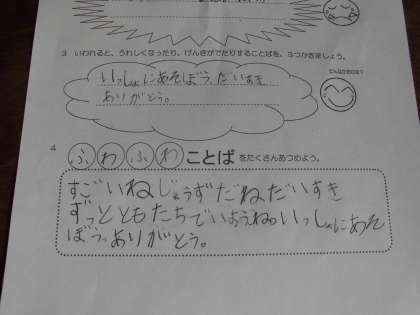 3 いわれると、うれしくなったり、げんきがでたりすることばを、3つかきましょう。
いっしょにあそぼう、だいすき
ありがとう。
4
ふわふわことばをたくさんあつめよう。
すごいねじょうずだね、だいすき
ずっとともだちでいようね。いっしょにあそ
ぼう。ありがとう。